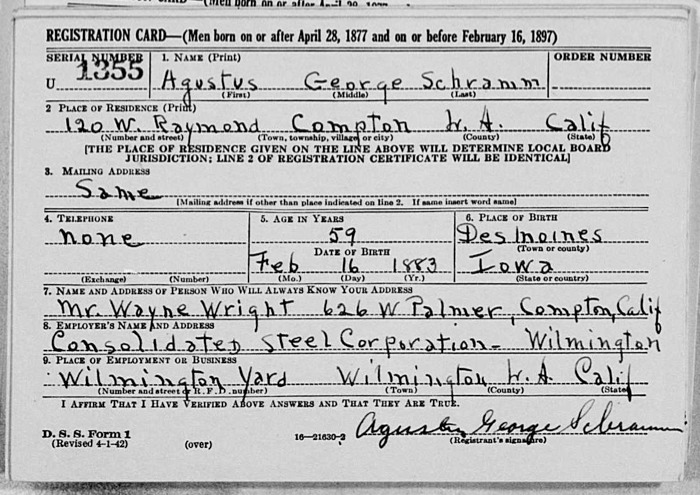 REGISTRATION CARD—(Men born on or after April 28, 1877 and on or before February 16, 1897)
SERIAL NUMBER 1. NAME (Print) ORDER NUMBER
U 1355 Agustus George Schramm
(First) (Middle) (Last)
2 PLACE OF RESIDENCE (Print)
120 W. Raymond Compton L.A. Calif
(Number and street) (Town, township, village, or city) (County) (State)
[THE PLACE OF RESIDENCE GIVEN ON THE LINE ABOVE WILL DETERMINE LOCAL BOARD
JURISDICTION; LINE 2 OF REGISTRATION CERTIFICATE WILL BE IDENTICAL]
3. MAILING ADDRESS
Same
[Mailing address if other than place indicated on line 2. If same insert word same]
4. TELEPHONE 5. AGE IN YEARS 6. PLACE OF BIRTH
none 59 Des Moines
(Town or county)
DATE OF BIRTH
Feb 16 1883 Iowa
(Exchange) (Number) (Mo.) (Day) (Yr.) (State or country)
7. NAME AND ADDRESS OF PERSON WHO WILL ALWAYS KNOW YOUR ADDRESS
Mr. Wayne Wright 626 W Palmer, Compton, Calif
8. EMPLOYER'S NAME AND ADDRESS
Consolidated Steel Corporation - Wilmington
9. PLACE OF EMPLOYMENT OR BUSINESS
Wilmington Yard Wilmington L.A. Calif
(Number and street or R. F. D. number) (Town) (County) (State)
I AFFIRM THAT I HAVE VERIFIED ABOVE ANSWERS AND THAT THEY ARE TRUE.
Agustus George Schramm
D. S. S. Form 1
(Revised 4-1-42) (over) 16—21630-2 (Registrant's signature)